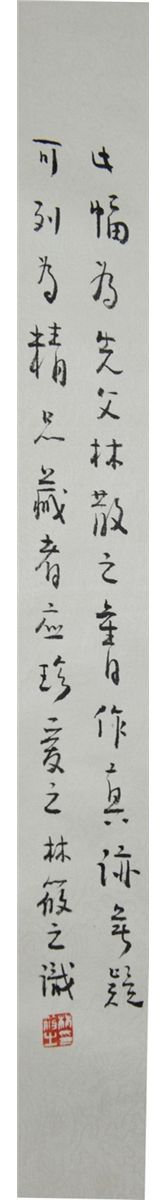 此幅為先父林散之書作真跡無疑
可列為精品藏者应珍愛之林筱之識